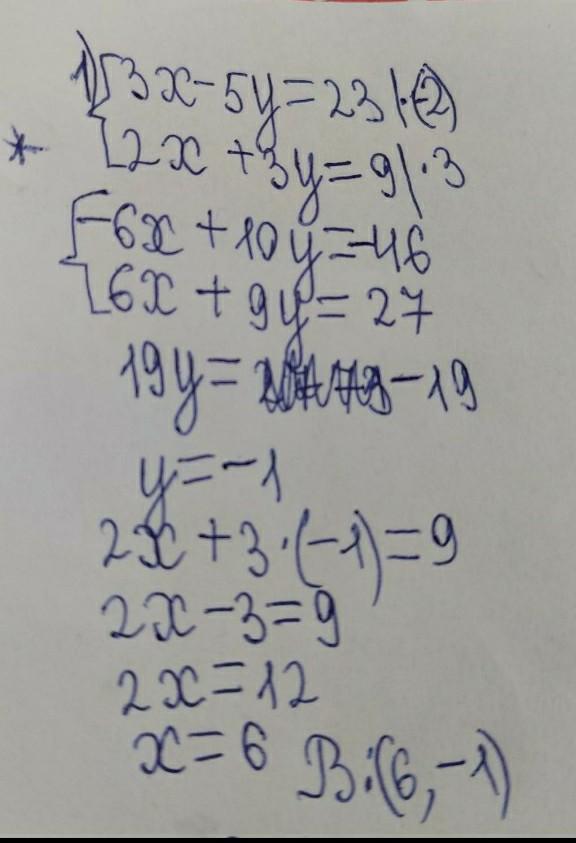 1) 3x-5y=23|·(-2)
* 2x+3y=9|·3
-6x+10y=-46
6x+9y=27
19y= -19
y=-1
2x+3·(-1)=9
2x-3=9
2x=12
x=6 В:(6,-1)